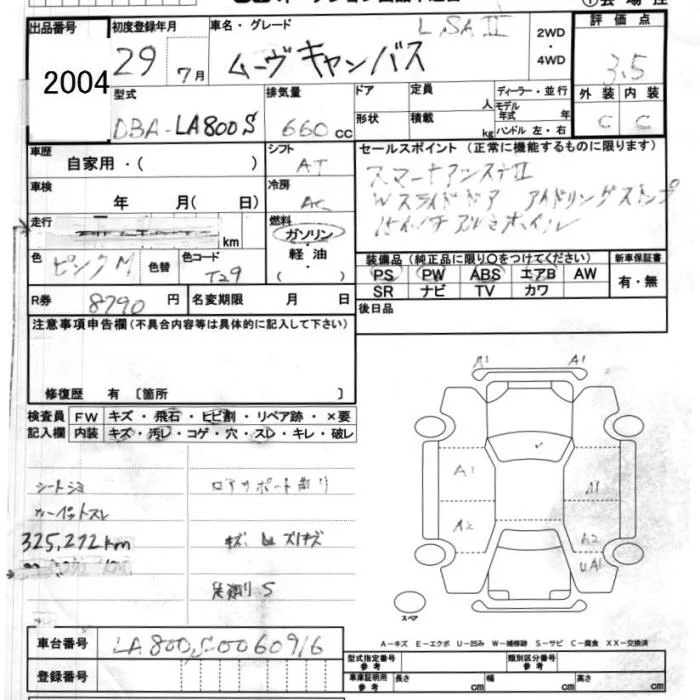 出品番号
2004
初度登録年月
29 7月
車名・グレード
ムーヴキャンバス
2WD
・
4WD
評価点
3.5
外装 内装
C C
型式
DBA-LA800S
排気量
660 cc
ドア
形状
定員
人
積載
kg
ディーラー・並行
モデル
年式 年
ハンドル 左・右
車歴
自家用・( )
シフト
AT
車検
年 月( 日)
冷房
AC
走行
km
燃料
ガソリン
・
軽油
( )
色
ピンクM
色替
色コード
T29
R券
8790 円
名変期限 月 日
セールスポイント (正常に機能するものに限ります)
Wスライドドア アイドリングストップ
装備品 (純正品に限り○をつけてください)
PS PW ABS エアB AW
SR ナビ TV カワ
新車保証書
有・無
後日品
注意事項申告欄(不具合内容等は具体的に記入して下さい)
修復歴 有 〔箇所 〕
検査員
記入欄
FW キズ・飛石・ヒビ割・リペア跡・×要
内装 キズ・汚レ・コゲ・穴・スレ・キレ・破レ
325,272km
A1 A1
A1 A1
A2 A2
UA1
スペア
A-キズ E-エクボ U-凹み W-補修跡 S-サビ C-腐食 XX-交換済
車台番号
LA800S-0060916
登録番号
型式指定番号
参考
類別区分番号
参考
車庫証明用
参考
長さ cm
幅 cm
高さ cm